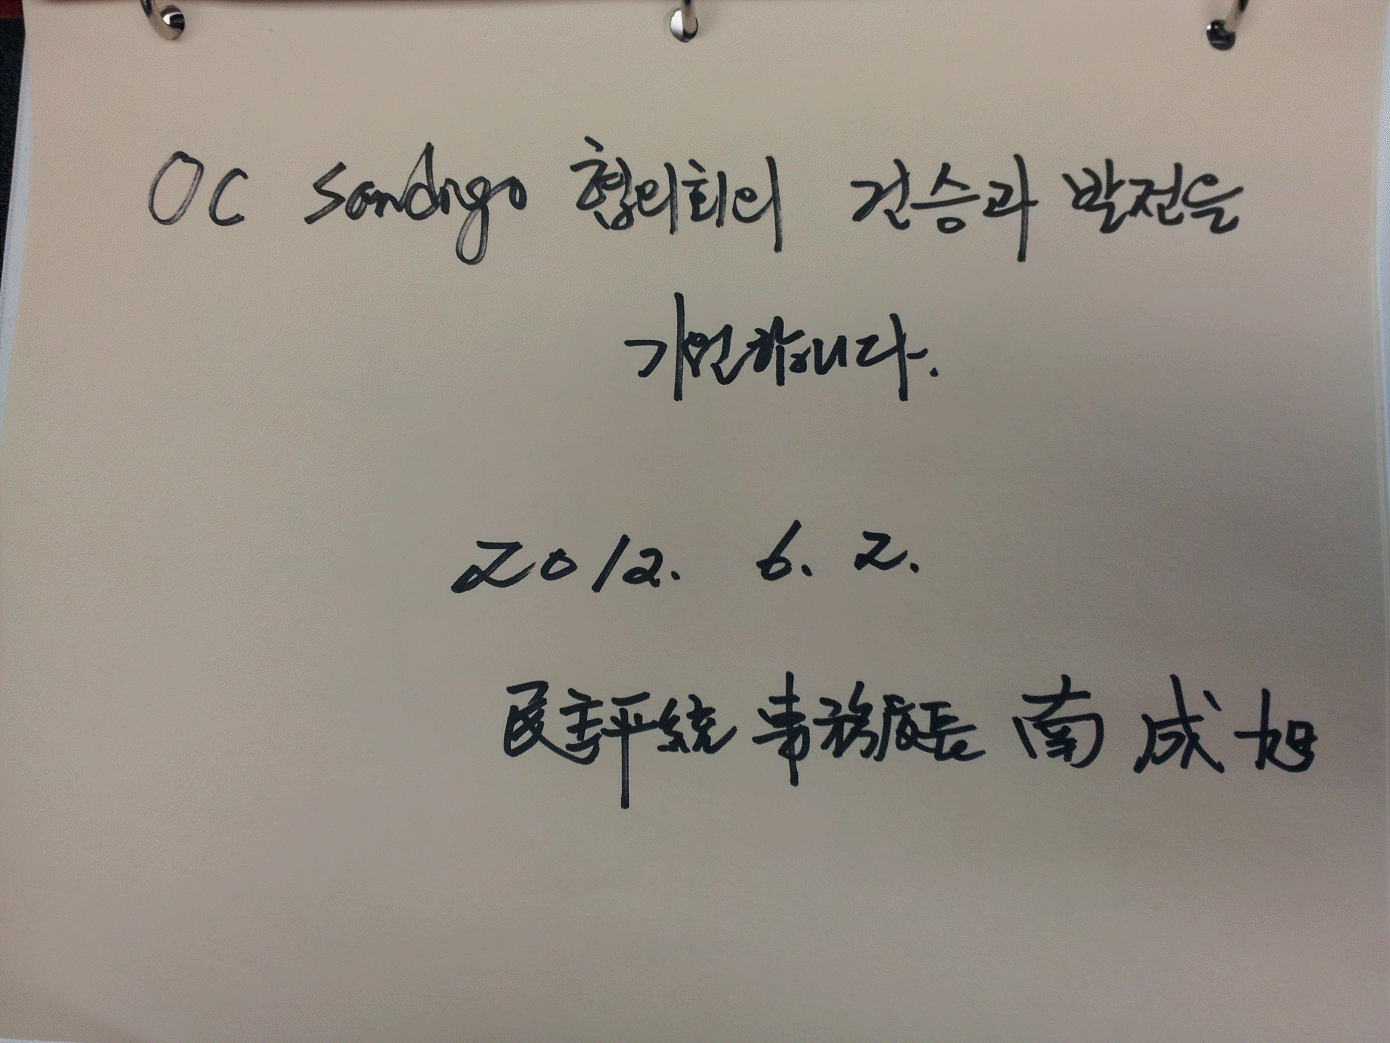 OC Sandigo 협의회의 건승과 발전을
기원합니다.
2012. 6. 2.
民主平統 事務處長 南成旭